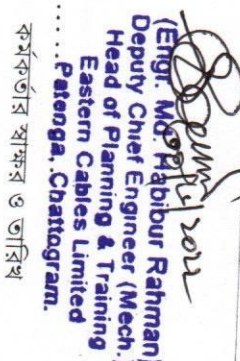 (Engr. Md. Habibur Rahman)
Deputy Chief Engineer (Mech.)
Head of Planning & Training
Eastern Cables Limited
Patenga, Chattogram.
কর্মকর্তার স্বাক্ষর ও তারিখ